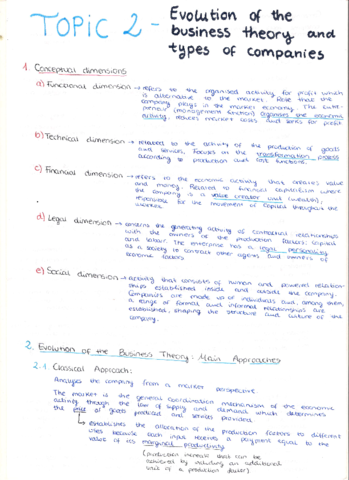 TOPIC 2 - Evolution of the
business theory and
types of companies
1. Conceptual dimensions
a) Functional dimension → refers to the organised activity for profit which
is alternative to the market. Role that the
company plays in the market economy. The
(management function) organises the economic
activity, reduces market costs and seeks for profit
b) Technical dimension → related to the activity of the production of goods
and services. Focuses on the transformation process
according to production and cost functions.
c) Financial dimension → refers to the economic activity that creates value
and money. Related to financial capitalism where
the company is a value creator unit
necessary for the movement of capital throughout the
market.
d) Legal dimension → concerns the generating activity of contractual relationships
with the owners of the production factors: capital
and labour. The enterprise has a legal personality
as a society to contract other agents and owners of
economic factors
e) Social dimension → activity that consists of human and powers relation-
ships established inside and outside the company.
Companies are made up of individuals and, among them,
a range of formal and informal relationships are
established, shaping the structure and culture of the
company.
2. Evolution of the Business Theory: Main Approaches
2.1 Classical Approach:
Analyses the company from a market perspective.
The market is the general coordination mechanism of the economic
activity through the law of supply and demand which determines
the price of goods produced and services provided
↳ establishes the allocation of the production factors to different
uses because each input receives a payment equal to the
value of its marginal productivity
(production increase that can be
achieved by including an additional
unit of a production factor)